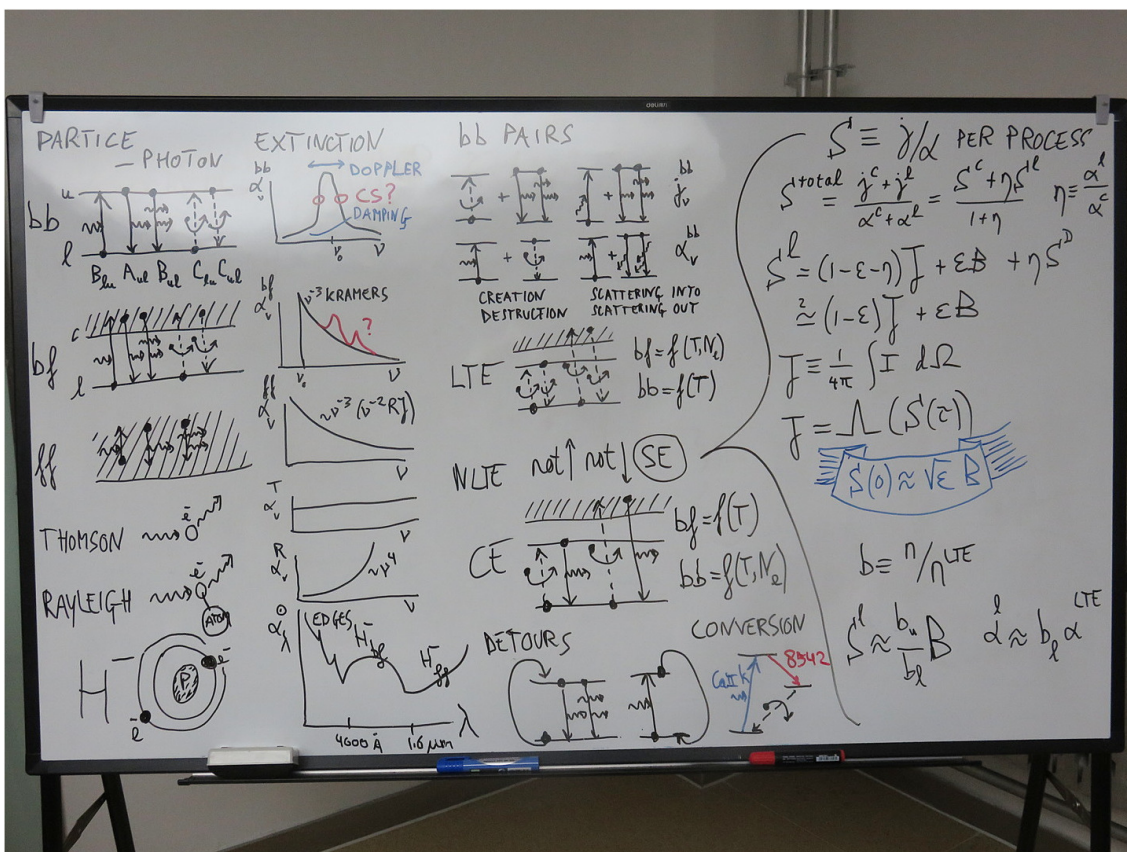 deli
PARTICE
— PHOTON
u
bb
l
B_lu A_ul B_ul C_lu C_ul
c
bf
l
ff
THOMSON
e⁻
RAYLEIGH
e⁻
ATOM
H⁻
P
e⁻
e⁻
EXTINCTION
α_ν^bb
DOPPLER
CS?
DAMPING
ν₀
ν
α_ν^bf
ν⁻³ KRAMERS
?
ν₀
ν
α_ν^ff
~ν⁻³ (ν⁻² RJ)
ν
α_ν^T
ν
α_ν^R
~ν⁴
ν
α_λ^O
EDGES
H⁻_bf
H⁻_ff
λ
4000 Å
1.6 μm
bb PAIRS
+ + j_ν^bb
+ + α_ν^bb
CREATION
DESTRUCTION
SCATTERING INTO
SCATTERING OUT
LTE
bf = f(T,N_e)
bb = f(T)
NLTE not↑ not↓ SE
CE
bf = f(T)
bb = f(T,N_e)
DETOURS
CONVERSION
CaII K
8542
S ≡ j/α PER PROCESS
S^total = (j^c + j^l)/(α^c + α^l) = (S^c + ηS^l)/(1+η) η ≡ α^l/α^c
S^l = (1-ε-η)J + εB + ηS^D
≈? (1-ε)J + εB
J ≡ 1/4π ∫I dΩ
J = Λ(S(τ))
S(0) ≈ √ε B
b ≡ n/n^LTE
S^l ≈ b_u/b_l B α^l ≈ b_l α^LTE